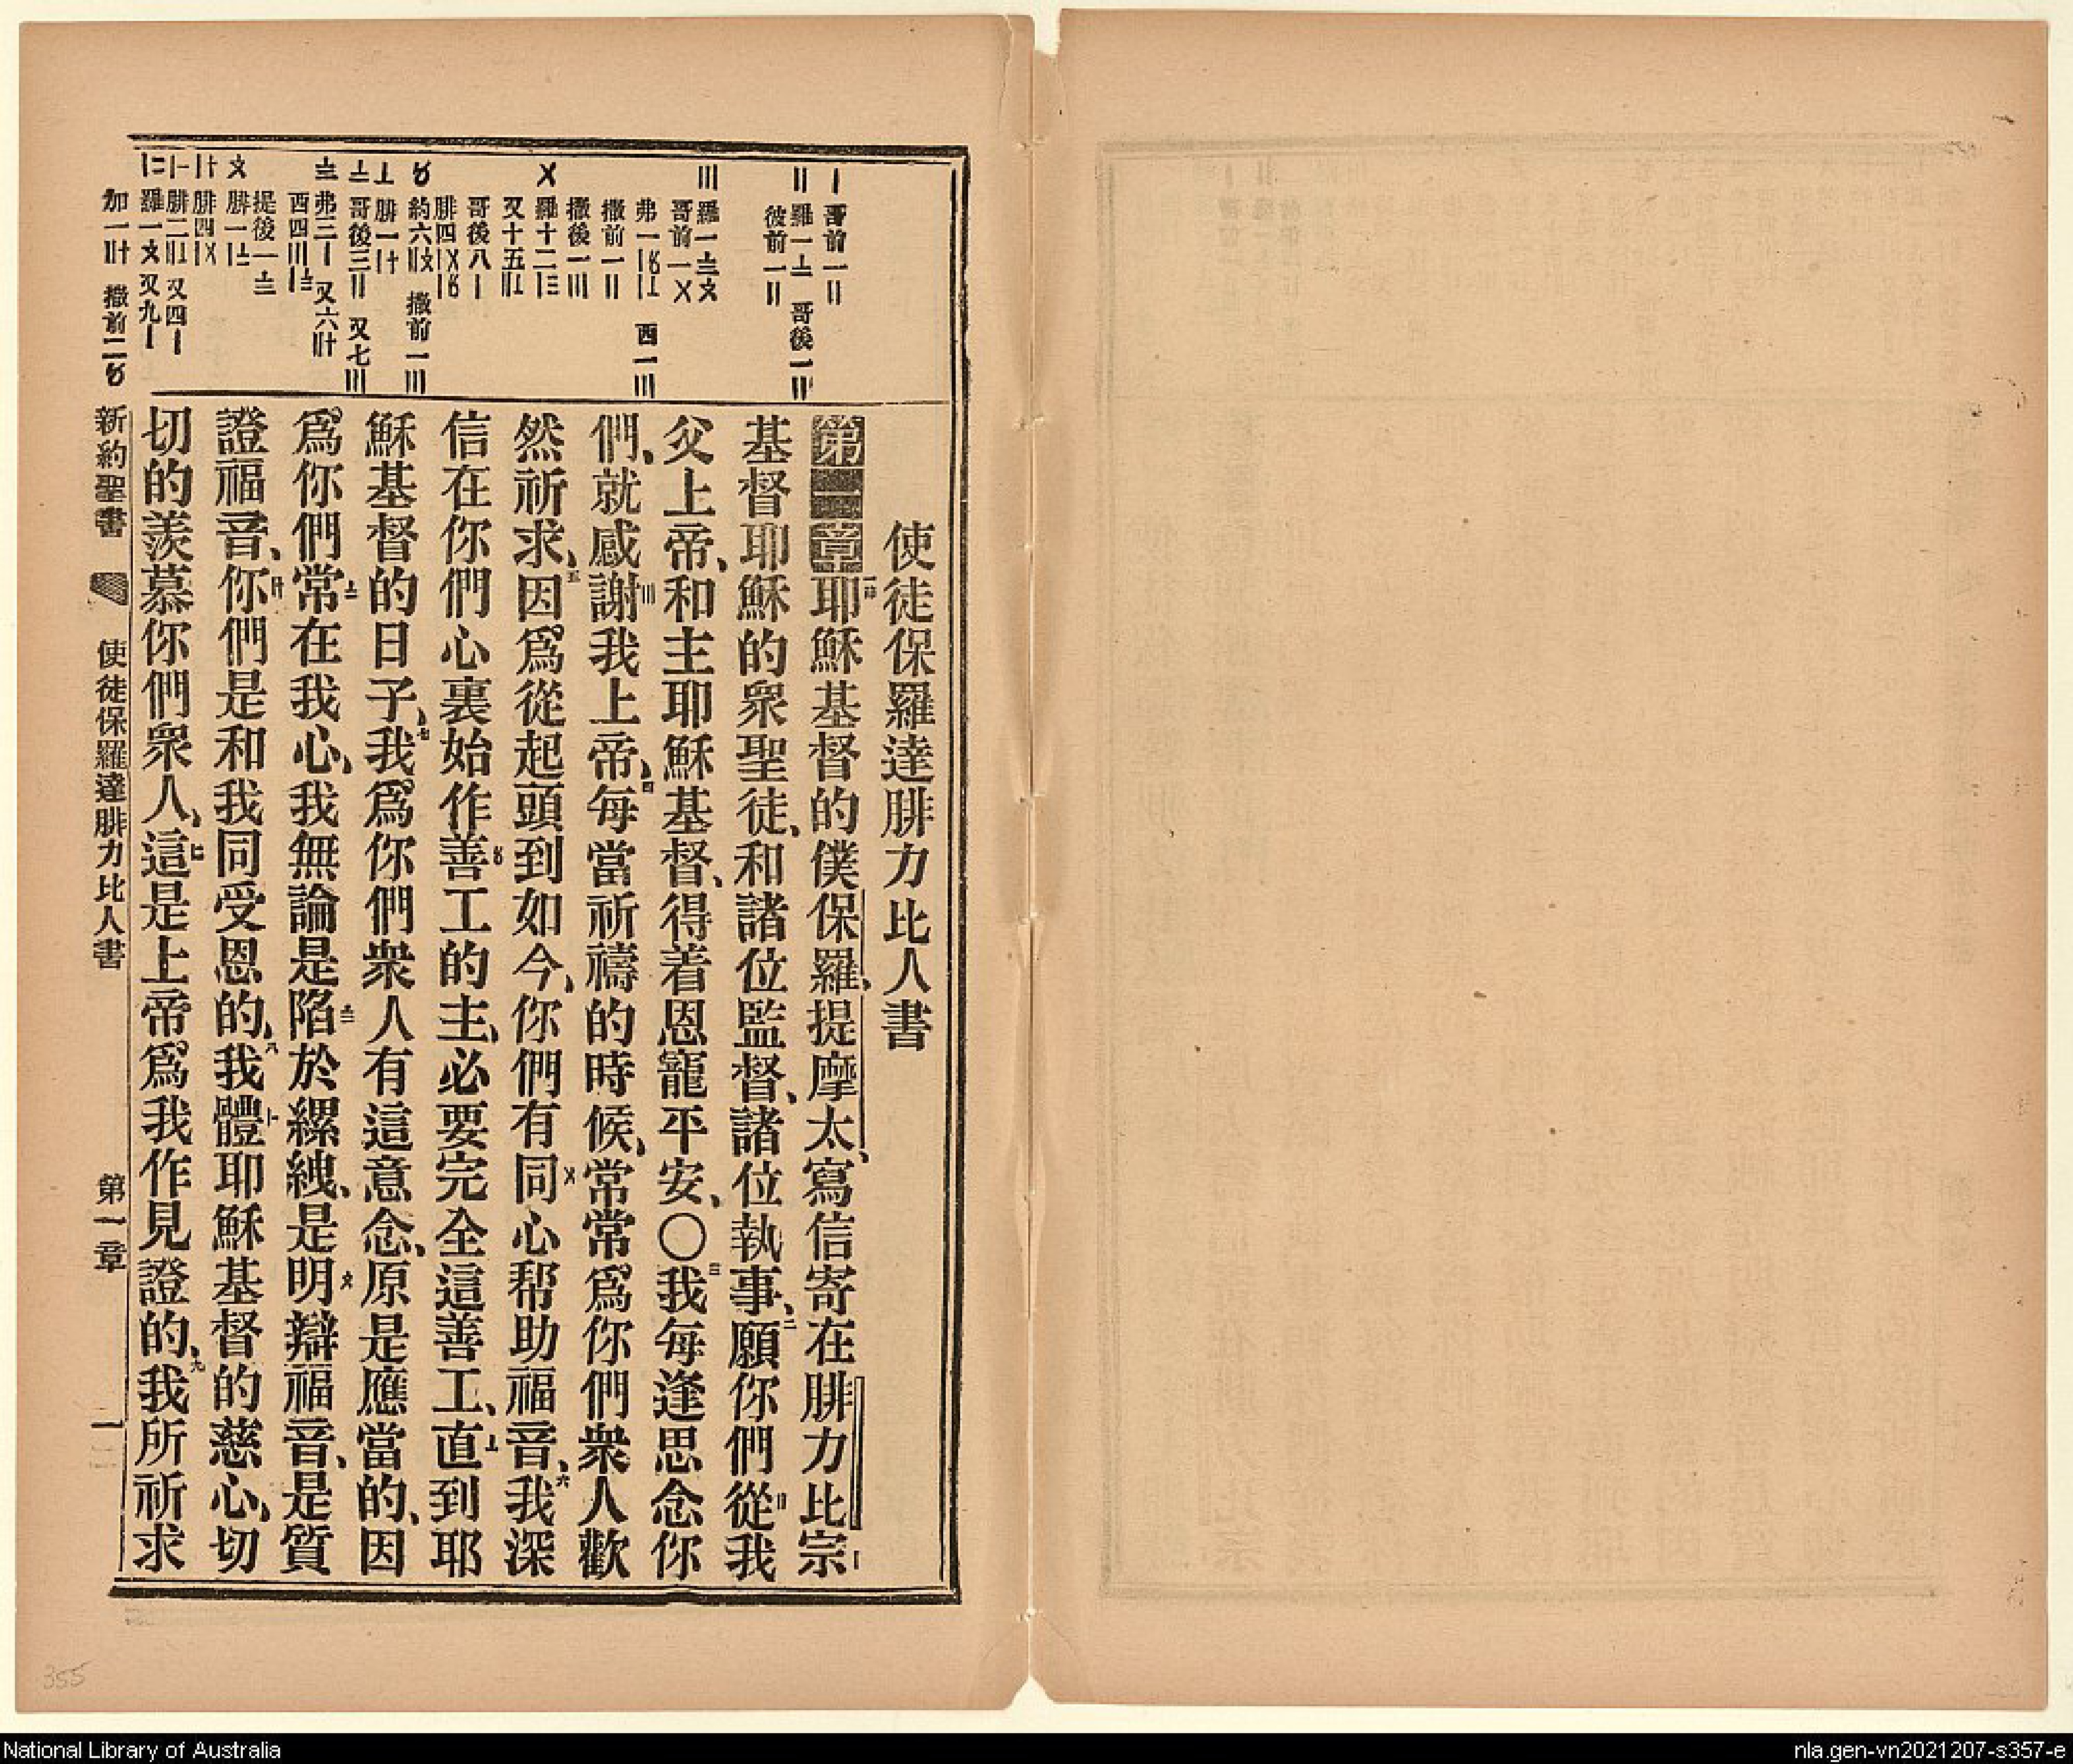 使徒保羅達腓力比人書
第一章耶穌基督的僕保羅、提摩太、寫信寄在腓力比宗
基督耶穌的眾聖徒、和諸位監督、諸位執事、願你們從我
父上帝、和主耶穌基督、得着恩寵平安、〇我每逢思念你
們、就感謝我上帝、每當祈禱的時候、常常爲你們衆人歡
然祈求、因爲從起頭到如今、你們有同心帮助福音、我深
信在你們心裏始作善工的主、必要完全這善工、直到耶
穌基督的日子、我爲你們衆人有這意念、原是應當的、因
爲你們常在我心、我無論是陷於縲絏、是明辯福音、是質
證福音、你們是和我同受恩的、我體耶穌基督的慈心、切
切的羨慕你們衆人、這是上帝爲我作見證的、我所祈求
新約聖書 使徒保羅達腓力比人書 第一章 一
〡哥前一〢
〢羅一〦 哥後一〢
彼前一〢
〣羅一〨〩
哥前一〤
弗一〡〥〡〦 西一〣
撒前一〢
撒後一〣
〤羅十二〡〣
又十五〢〦
哥後八〡
腓四〡〤〡〥
〥約六〢〩 撒前一〣
〦腓一〸
〧哥後三〢 又七〣
〨弗三〡 又六〢〸
西四〣〡〨
提後一〨
〩腓一〡〧
〸腓四〡〤
〡一腓二〢〦 又四〡
〡二羅一〩 又九〡
加一〢〸 撒前二〥
355
National Library of Australia
nla.gen-vn2021207-s357-e